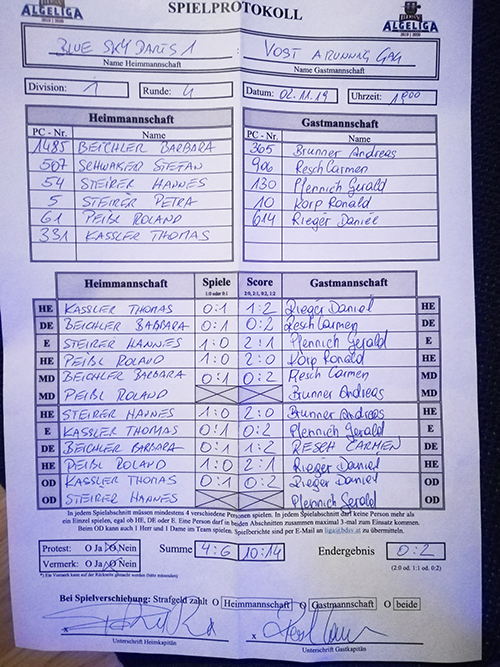 BDSV ALGELIGA 2019 | 2020 SPIELPROTOKOLL BDSV ALGELIGA 2019 | 2020
BLUE SKY DARTS 1 VOST A RUNNING GAG
Name Heimmannschaft Name Gastmannschaft
Division: 1 Runde: 4 Datum: 02.11.19 Uhrzeit: 1900
Heimmannschaft Gastmannschaft
PC - Nr. Name PC - Nr. Name
1485 BEICHLER BARBARA 365 Brunner Andreas
507 SCHWAIGER STEFAN 906 Resch Carmen
54 STEIRER HANNES 130 Pfennich Gerald
5 STEIRER PETRA 10 Korp Ronald
61 PEIßL ROLAND 614 Rieger Daniel
331 KASSLER THOMAS
Heimmannschaft Spiele Score Gastmannschaft
1:0 oder 0:1 2:0, 2:1, 0:2, 1:2
HE KASSLER THOMAS 0:1 1:2 Rieger Daniel HE
DE BEICHLER BARBARA 0:1 0:2 Resch Carmen DE
E STEIRER HANNES 1:0 2:1 Pfennich Gerald E
HE PEIßL ROLAND 1:0 2:0 Korp Ronald HE
MD BEICHLER BARBARA 0:1 0:2 Resch Carmen MD
MD PEIßL ROLAND Brunner Andreas MD
HE STEIRER HANNES 1:0 2:0 Brunner Andreas HE
E KASSLER THOMAS 0:1 0:2 Pfennich Gerald E
DE BEICHLER BARBARA 0:1 1:2 RESCH CARMEN DE
HE PEIßL ROLAND 1:0 2:1 Rieger Daniel HE
OD KASSLER THOMAS 0:1 0:2 Rieger Daniel OD
OD STEIRER HANNES Pfennich Gerald OD
In jedem Spielabschnitt müssen mindestens 4 verschiedene Personen spielen. In jedem Spielabschnitt darf keine Person mehr als
ein Einzel spielen, egal ob HE, DE oder E. Eine Person darf in beiden Abschnitten zusammen maximal 3-mal zum Einsatz kommen.
Beim OD kann auch 1 Herr und 1 Dame im Team spielen. Spielberichte sind per E-Mail an liga@bdsv.at zu übermitteln.
Protest: O Ja O Nein Summe 4:6 10:14 Endergebnis 0:2
Vermerk: O Ja O Nein (2:0 od. 1:1 od. 0:2)
*) Ein Vermerk kann auf der Rückseite gemacht werden (bitte mitsenden)
Bei Spielverschiebung: Strafgeld zahlt O Heimmannschaft O Gastmannschaft O beide
x x
Unterschrift Heimkapitän Unterschrift Gastkapitän